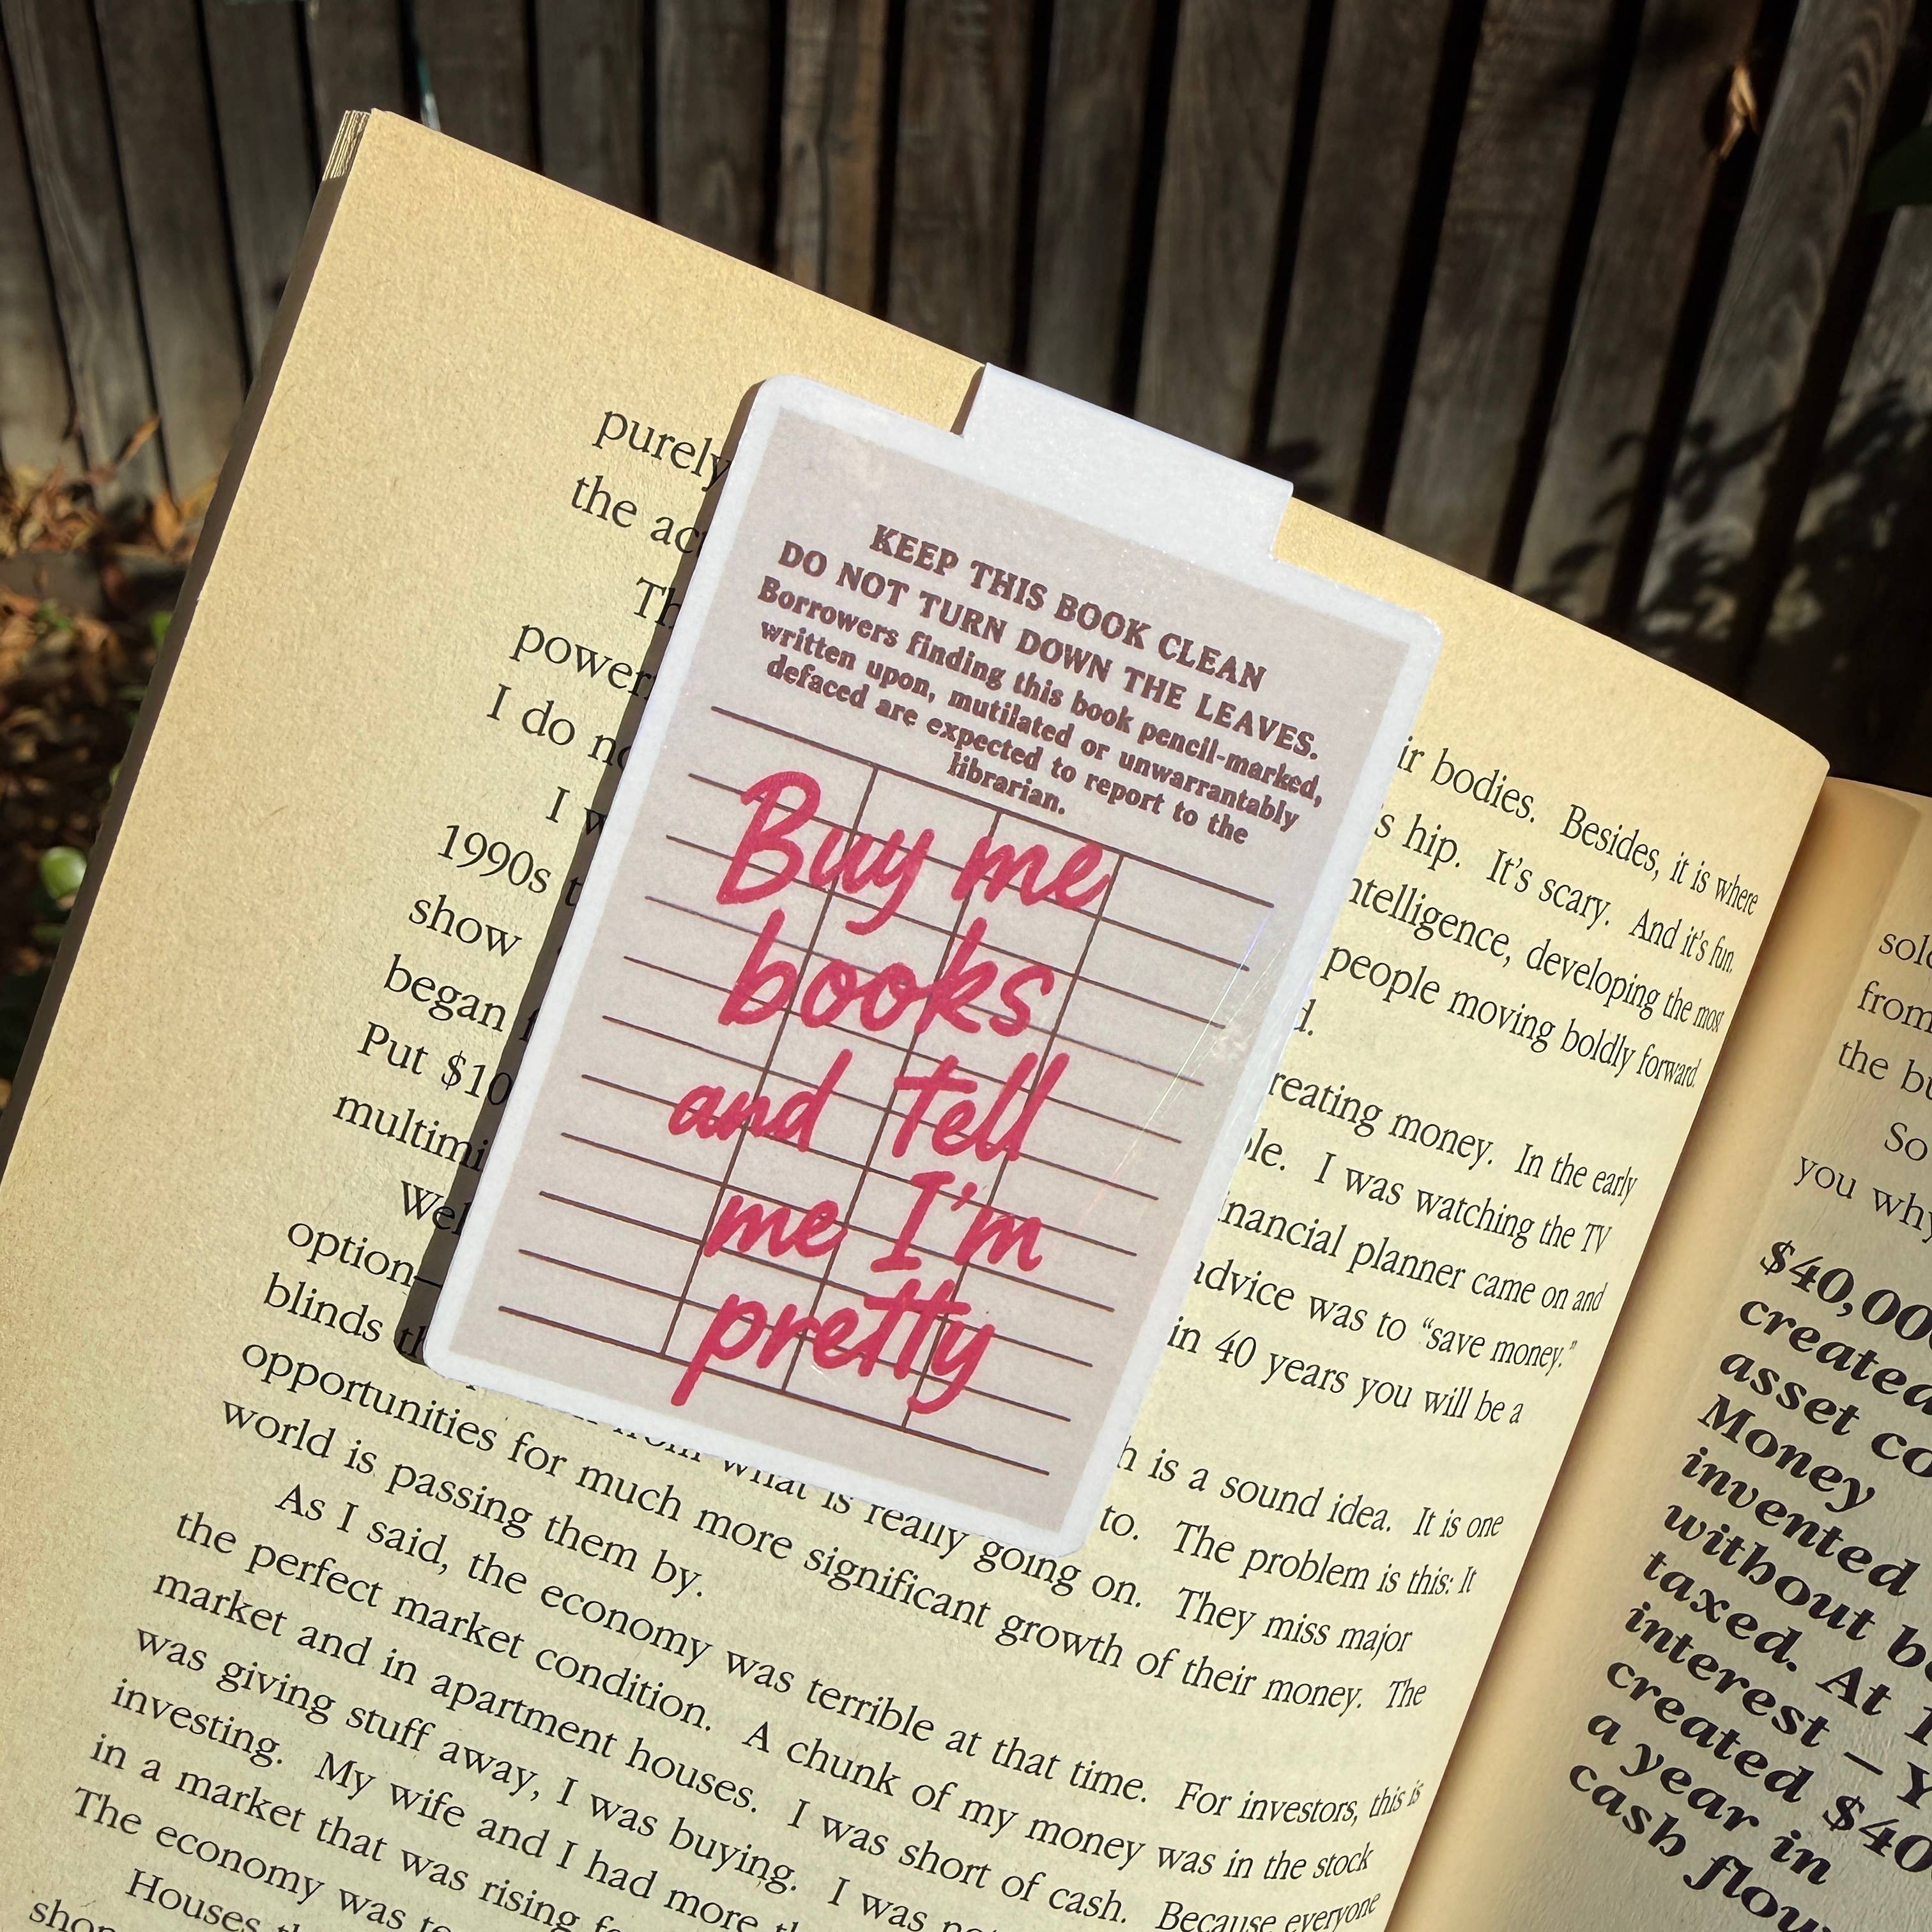 KEEP THIS BOOK CLEAN
DO NOT TURN DOWN THE LEAVES.
Borrowers finding this book pencil-marked,
written upon, mutilated or unwarrantably
defaced are expected to report to the
librarian.
Buy me
books
and tell
me I'm
pretty
purely
the
ir bodies. Besides, it is where
s hip. It's scary. And it's fun.
I do
intelligence, developing the most
people moving boldly forward.
I
creating money. In the early
1990s
I was watching the TV
show
financial planner came on and
began
advice was to “save money.”
Put $10
in 40 years you will be a
is a sound idea. It is one
option—
to. The problem is this: It
blinds
from what is really going on. They miss major
opportunities for much more significant growth of their money. The
world is passing them by.
As I said, the economy was terrible at that time. For investors, this is
the perfect market condition. A chunk of my money was in the stock
market and in apartment houses. I was short of cash. Because everyone
was giving stuff away, I was buying. I was
investing. My wife and I had more
in a market that was rising
The economy was
Houses
from
the
So
you why
$40,00
created
asset
Money
invented
without
taxed. At
interest –
created $40
a year in
cash flow